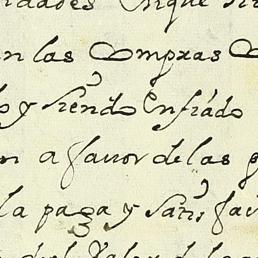 idades enque
en las Compras
y siendo enfiado
n a favor de las
la paga y satis fa
del Valor de